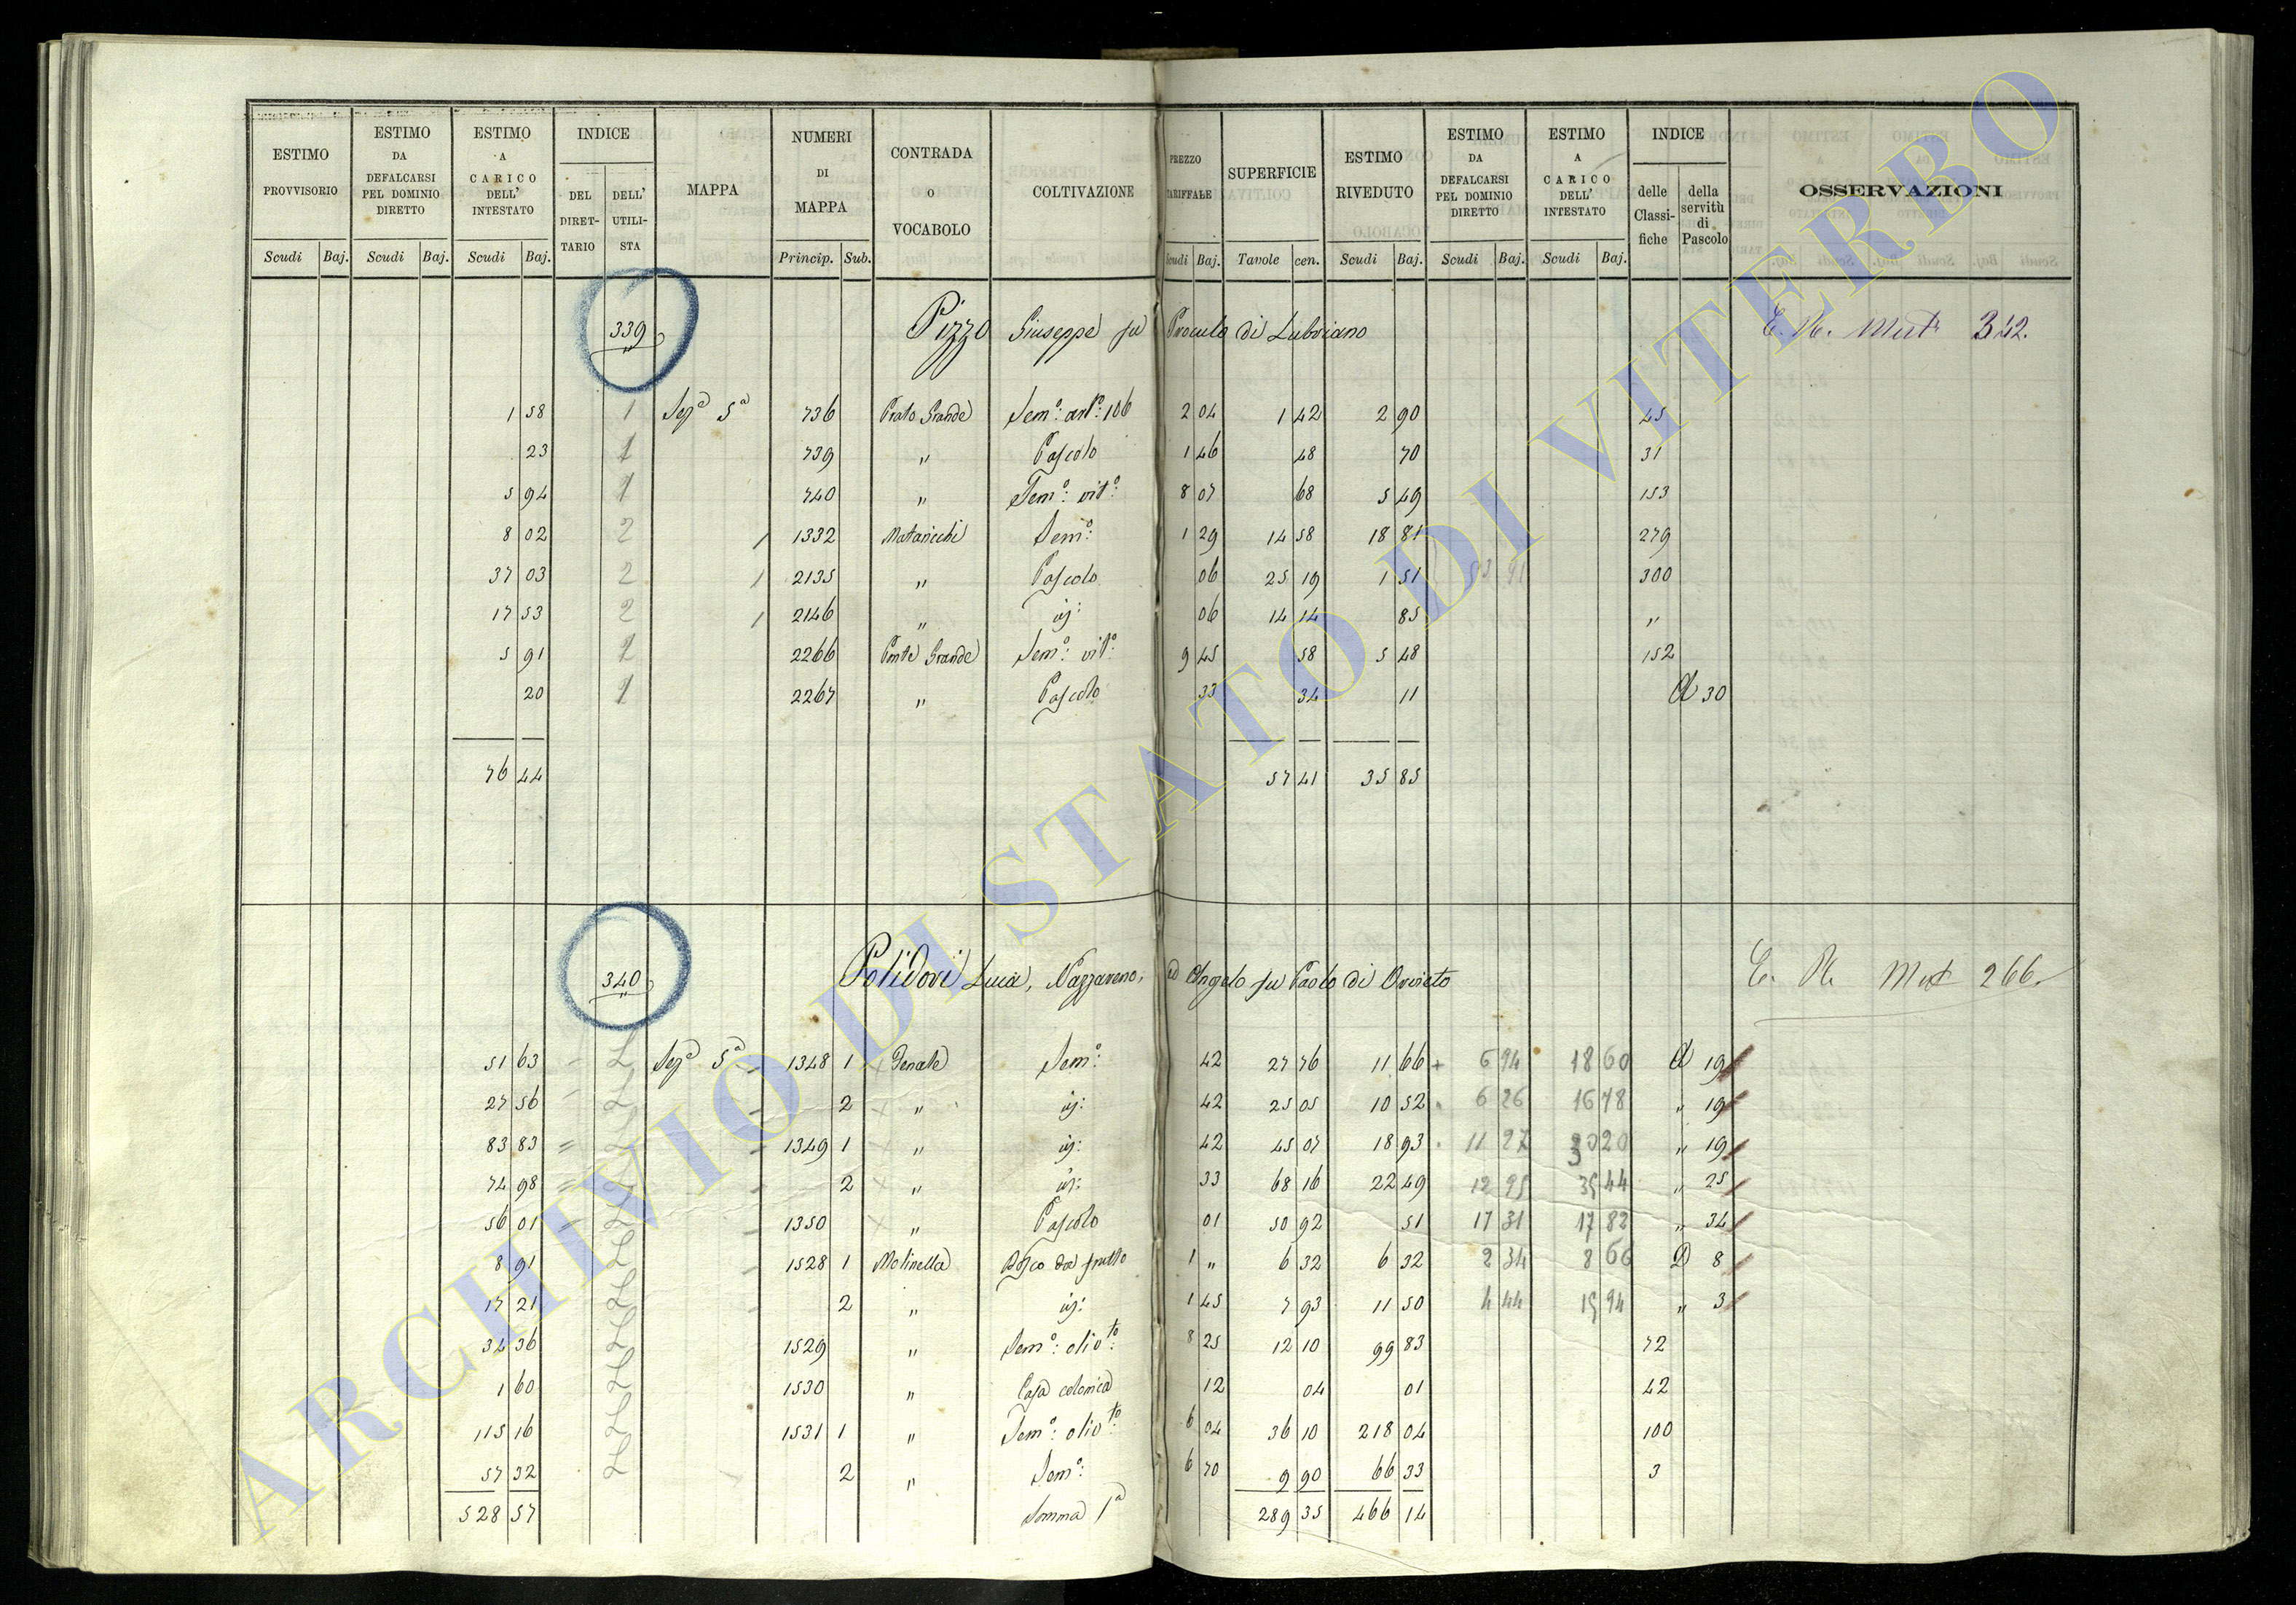 ESTIMO PROVVISORIO | ESTIMO DA DEFALCARSI PEL DOMINIO DIRETTO | ESTIMO A CARICO DELL' INTESTATO | INDICE DEL DIRET-TARIO | DELL' UTILI-STA | MAPPA | NUMERI DI MAPPA | CONTRADA o VOCABOLO | COLTIVAZIONE | PREZZO TARIFFALE | SUPERFICIE | ESTIMO RIVEDUTO | ESTIMO DA DEFALCARSI PEL DOMINIO DIRETTO | ESTIMO A CARICO DELL' INTESTATO | INDICE delle Classi-fiche | della servitù di Pascolo | OSSERVAZIONI
Scudi Baj. | Scudi Baj. | Scudi Baj. | Princip. Sub. | Scudi Baj. | Tavole cen. | Scudi Baj. | Scudi Baj. | Scudi Baj.
339 Pizzo Giuseppe fu Proculo di Lubriano E. N. Mut. 342.
1 58 1 Sez.a 5a 736 Prato Grande Sem.o: art.o: 106 2 04 1 42 2 90 45
23 1 739 " Pascolo 1 46 48 70 31
5 94 1 740 " Sem.o: vit.o: 8 07 68 5 49 153
8 02 2 1332 Sem.o: 1 29 14 58 18 81 279
37 03 2 2135 " Pascolo 06 25 19 1 51 300
17 53 2 2146 " id: 06 14 14 85 "
5 91 1 2266 Ponte Grande Sem.o: vit.o: 9 45 58 5 48 152
20 1 2267 " Pascolo 33 34 11 A 30
76 44 57 41 35 85
340 Polidori Luca, Nazzareno, ed Angelo fu Paolo di Orvieto E. N. Mut 266
51 63 L Sez.a 5a 1348 1 Sem.o: 42 27 76 11 66 6 94 18 60 A 19
27 56 L 2 " id: 42 25 05 10 52 6 26 16 78 " 19
83 83 L 1349 1 " id: 42 45 07 18 93 11 27 30 20 " 19
74 98 L 2 " id: 33 68 16 22 49 12 95 35 44 " 25
56 01 L 1350 " Pascolo 01 50 92 51 17 31 17 82 " 34
8 91 L 1528 1 Molinella Bosco da frutto 1 " 6 32 6 32 2 34 8 66 D 8
17 21 L 2 " id: 1 45 7 93 11 50 4 44 15 94 " 3
34 36 L 1529 " Sem.o: olio.to: 8 25 12 10 99 83 72
1 60 L 1530 " Casa colonica 12 04 01 42
115 16 L 1531 1 " Sem.o: olio.to: 6 04 36 10 218 04 100
57 32 L 2 " Sem.o: 6 70 9 90 66 33 3
528 57 Somma 1a 289 35 466 14
ARCHIVIO DI STATO DI VITERBO